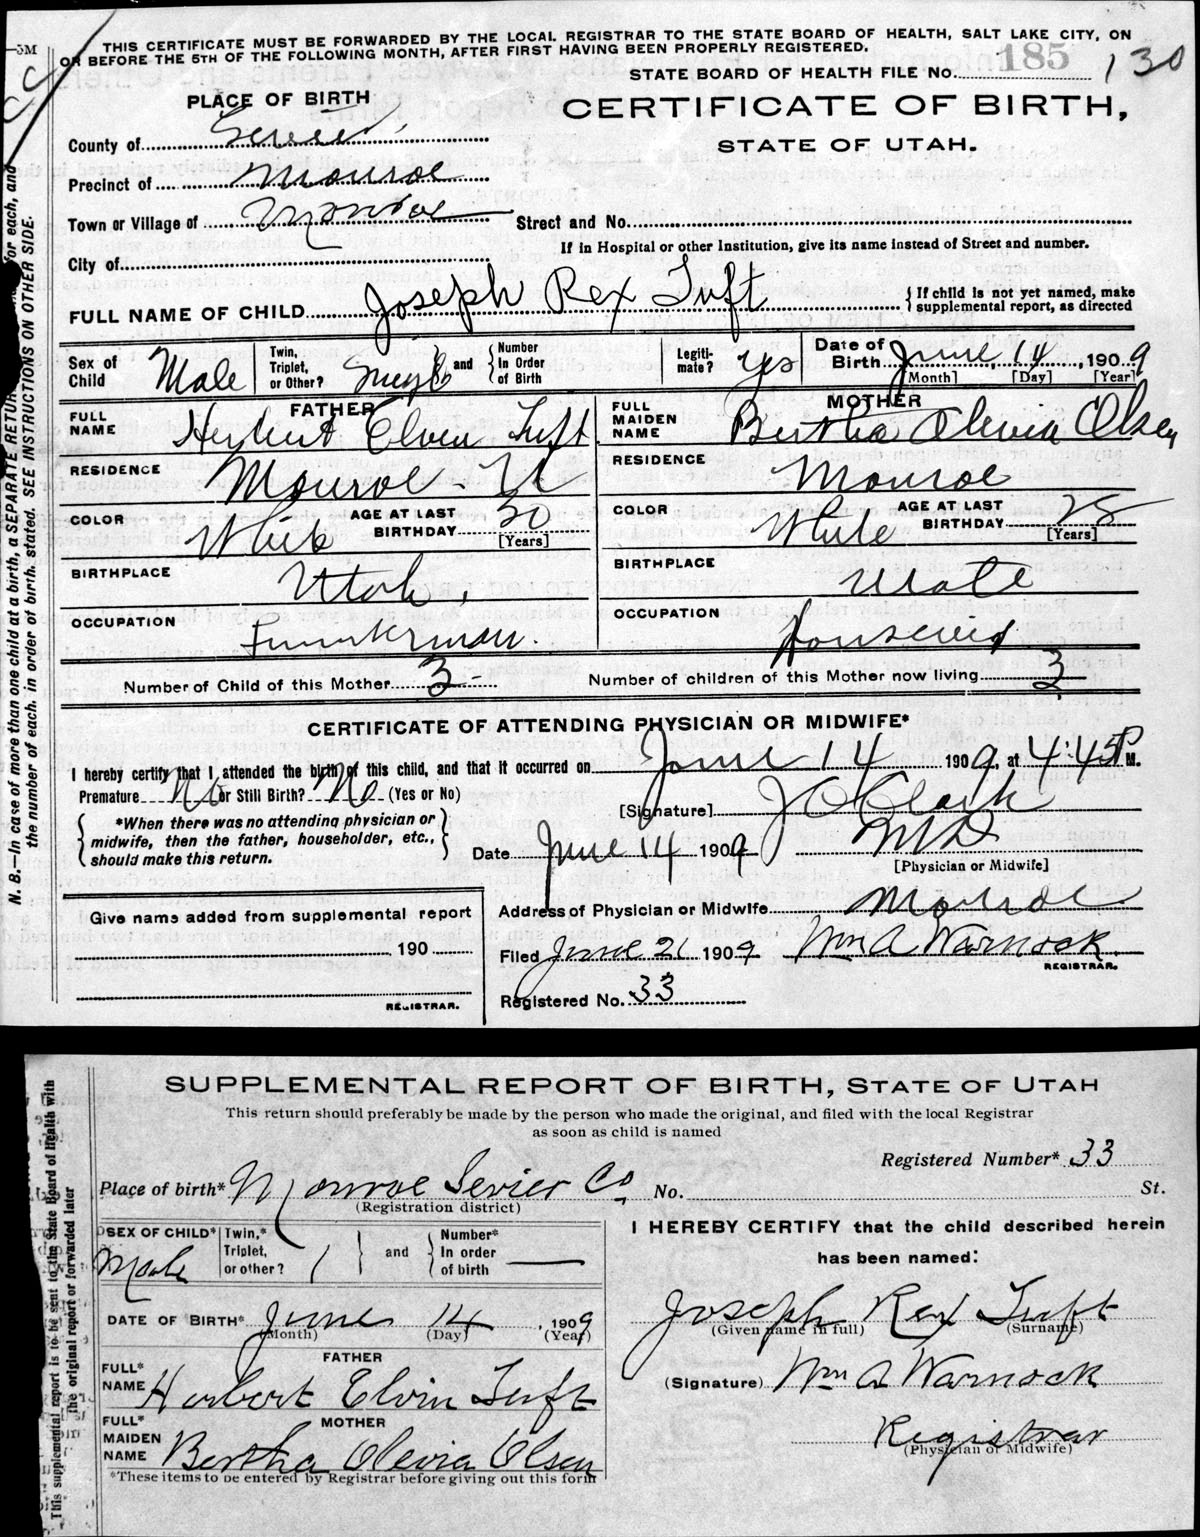 —5M
THIS CERTIFICATE MUST BE FORWARDED BY THE LOCAL REGISTRAR TO THE STATE BOARD OF HEALTH, SALT LAKE CITY, ON
OR BEFORE THE 5TH OF THE FOLLOWING MONTH, AFTER FIRST HAVING BEEN PROPERLY REGISTERED.
STATE BOARD OF HEALTH FILE No. 185 130
PLACE OF BIRTH
CERTIFICATE OF BIRTH,
STATE OF UTAH.
County of Sevier
Precinct of Monroe
Town or Village of Monroe
Street and No.
If in Hospital or other Institution, give its name instead of Street and number.
City of
FULL NAME OF CHILD Joseph Rex Tuft
{If child is not yet named, make
supplemental report, as directed
Sex of Child Male
Twin, Triplet, or Other? Single and { Number In Order of Birth
Legitimate? yes
Date of Birth June 14, 1909
[Month] [Day] [Year]
FATHER
FULL NAME Herbert Elven Tuft
MOTHER
FULL MAIDEN NAME Bertha Olevia Olsen
RESIDENCE Monroe - Ut
RESIDENCE Monroe
COLOR White AGE AT LAST BIRTHDAY 30 [Years]
COLOR White AGE AT LAST BIRTHDAY [Years]
BIRTHPLACE Utah,
BIRTHPLACE
OCCUPATION
OCCUPATION Housewife
Number of Child of this Mother 3 -
Number of children of this Mother now living 3
CERTIFICATE OF ATTENDING PHYSICIAN OR MIDWIFE*
I hereby certify that I attended the birth of this child, and that it occurred on June 14 1909, at 4:45 P M.
Premature No or Still Birth? No (Yes or No)
[Signature] J O Clark
{ *When there was no attending physician or
midwife, then the father, householder, etc.,
should make this return. }
Date June 14 1909 MD
[Physician or Midwife]
Give name added from supplemental report
190
REGISTRAR.
Address of Physician or Midwife Monroe
Filed June 21 1909 Wm A Warnock
REGISTRAR.
Registered No. 33
N. B.—In case of more than one child at a birth, a SEPARATE RETURN for each, and
the number of each, in order of birth, stated. SEE INSTRUCTIONS ON OTHER SIDE.
SUPPLEMENTAL REPORT OF BIRTH, STATE OF UTAH
This return should preferably be made by the person who made the original, and filed with the local Registrar
as soon as child is named
Registered Number* 33
Place of birth* Monroe Sevier Co No. St.
(Registration district)
SEX OF CHILD* Male
Twin,* Triplet, or other? 1 } and { Number* In order of birth —
I HEREBY CERTIFY that the child described herein
has been named:
DATE OF BIRTH* June 14, 1909
(Month) (Day) (Year)
Joseph Rex Tuft
(Given name in full) (Surname)
FATHER
FULL* NAME Herbert Elvin Tuft
(Signature) Wm A Warnock
MOTHER
FULL* MAIDEN NAME Bertha Olevia Olsen
Registrar
(Physician or Midwife)
*These items to be entered by Registrar before giving out this form
This supplemental report is to be sent to the State Board of Health with
the original report or forwarded later